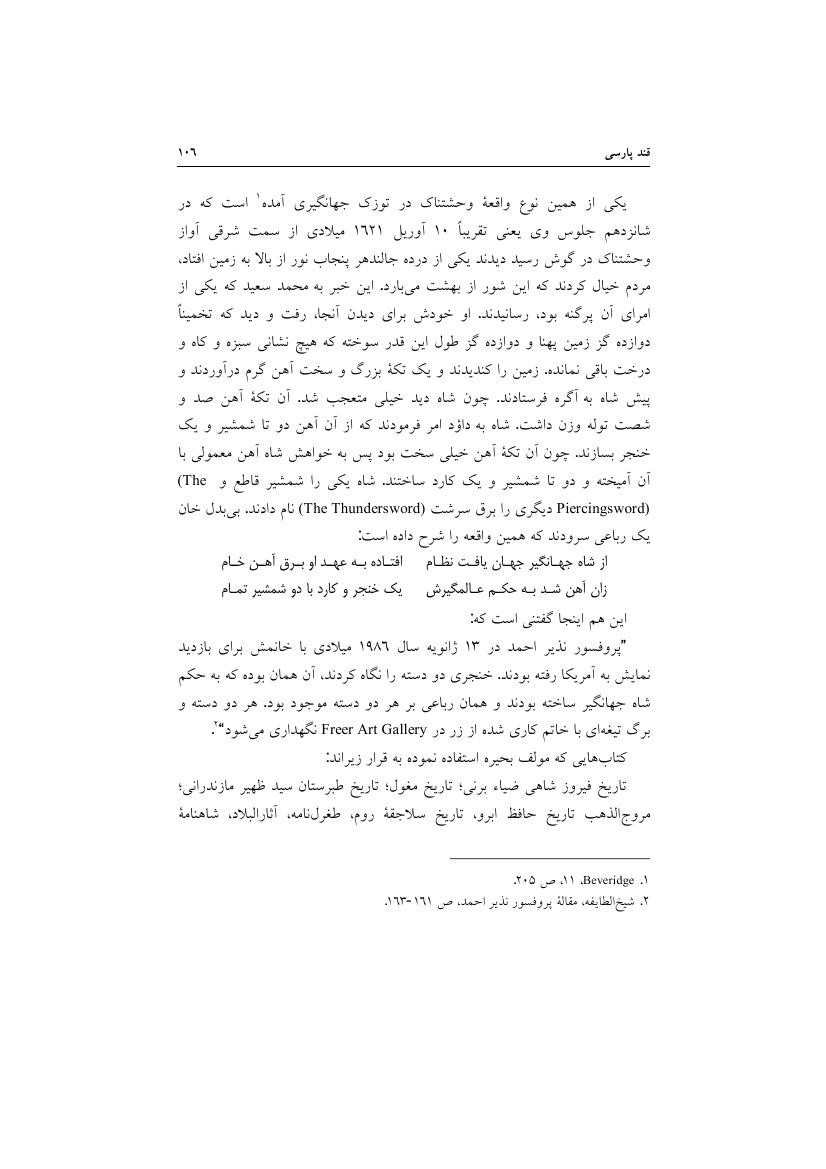 قند پارسی ١٠٦
یکی از همین نوع واقعهٔ وحشتناک در توزک جهانگیری آمده١ است که در
شانزدهم جلوس وی یعنی تقریباً ١٠ آوریل ١٦٢١ میلادی از سمت شرقی آواز
وحشتناک در گوش رسید دیدند یکی از درده جالندهر پنجاب نور از بالا به زمین افتاد،
مردم خیال کردند که این شور از بهشت می‌بارد. این خبر به محمد سعید که یکی از
امرای آن پرگنه بود، رسانیدند. او خودش برای دیدن آنجا، رفت و دید که تخمیناً
دوازده گز زمین پهنا و دوازده گز طول این قدر سوخته که هیچ نشانی سبزه و کاه و
درخت باقی نمانده. زمین را کندیدند و یک تکهٔ بزرگ و سخت آهن گرم درآوردند و
پیش شاه به آگره فرستادند. چون شاه دید خیلی متعجب شد. آن تکهٔ آهن صد و
شصت توله وزن داشت. شاه به داؤد امر فرمودند که از آن آهن دو تا شمشیر و یک
خنجر بسازند. چون آن تکهٔ آهن خیلی سخت بود پس به خواهش شاه آهن معمولی با
آن آمیخته و دو تا شمشیر و یک کارد ساختند. شاه یکی را شمشیر قاطع و (The
Piercingsword) دیگری را برق سرشت (The Thundersword) نام دادند. بی‌بدل خان
یک رباعی سرودند که همین واقعه را شرح داده است:
از شاه جهـانگیر جهـان یافـت نظـام افتـاده بـه عهـد او بـرق آهـن خـام
زان آهن شـد بـه حکـم عـالمگیرش یک خنجر و کارد با دو شمشیر تمـام
این هم اینجا گفتنی است که:
”پروفسور نذیر احمد در ١٣ ژانویه سال ١٩٨٦ میلادی با خانمش برای بازدید
نمایش به آمریکا رفته بودند. خنجری دو دسته را نگاه کردند، آن همان بوده که به حکم
شاه جهانگیر ساخته بودند و همان رباعی بر هر دو دسته موجود بود. هر دو دسته و
برگ تیغه‌ای با خاتم کاری شده از زر در Freer Art Gallery نگهداری می‌شود“٢.
کتاب‌هایی که مولف بحیره استفاده نموده به قرار زیراند:
تاریخ فیروز شاهی ضیاء برنی؛ تاریخ مغول؛ تاریخ طبرستان سید ظهیر مازندرانی؛
مروج‌الذهب تاریخ حافظ ابرو، تاریخ سلاجقهٔ روم، طغرل‌نامه، آثارالبلاد، شاهنامهٔ
١. Beveridge، ١١، ص ٢٠٥.
٢. شیخ‌الطایفه، مقالهٔ پروفسور نذیر احمد، ص ١٦١-١٦٣.